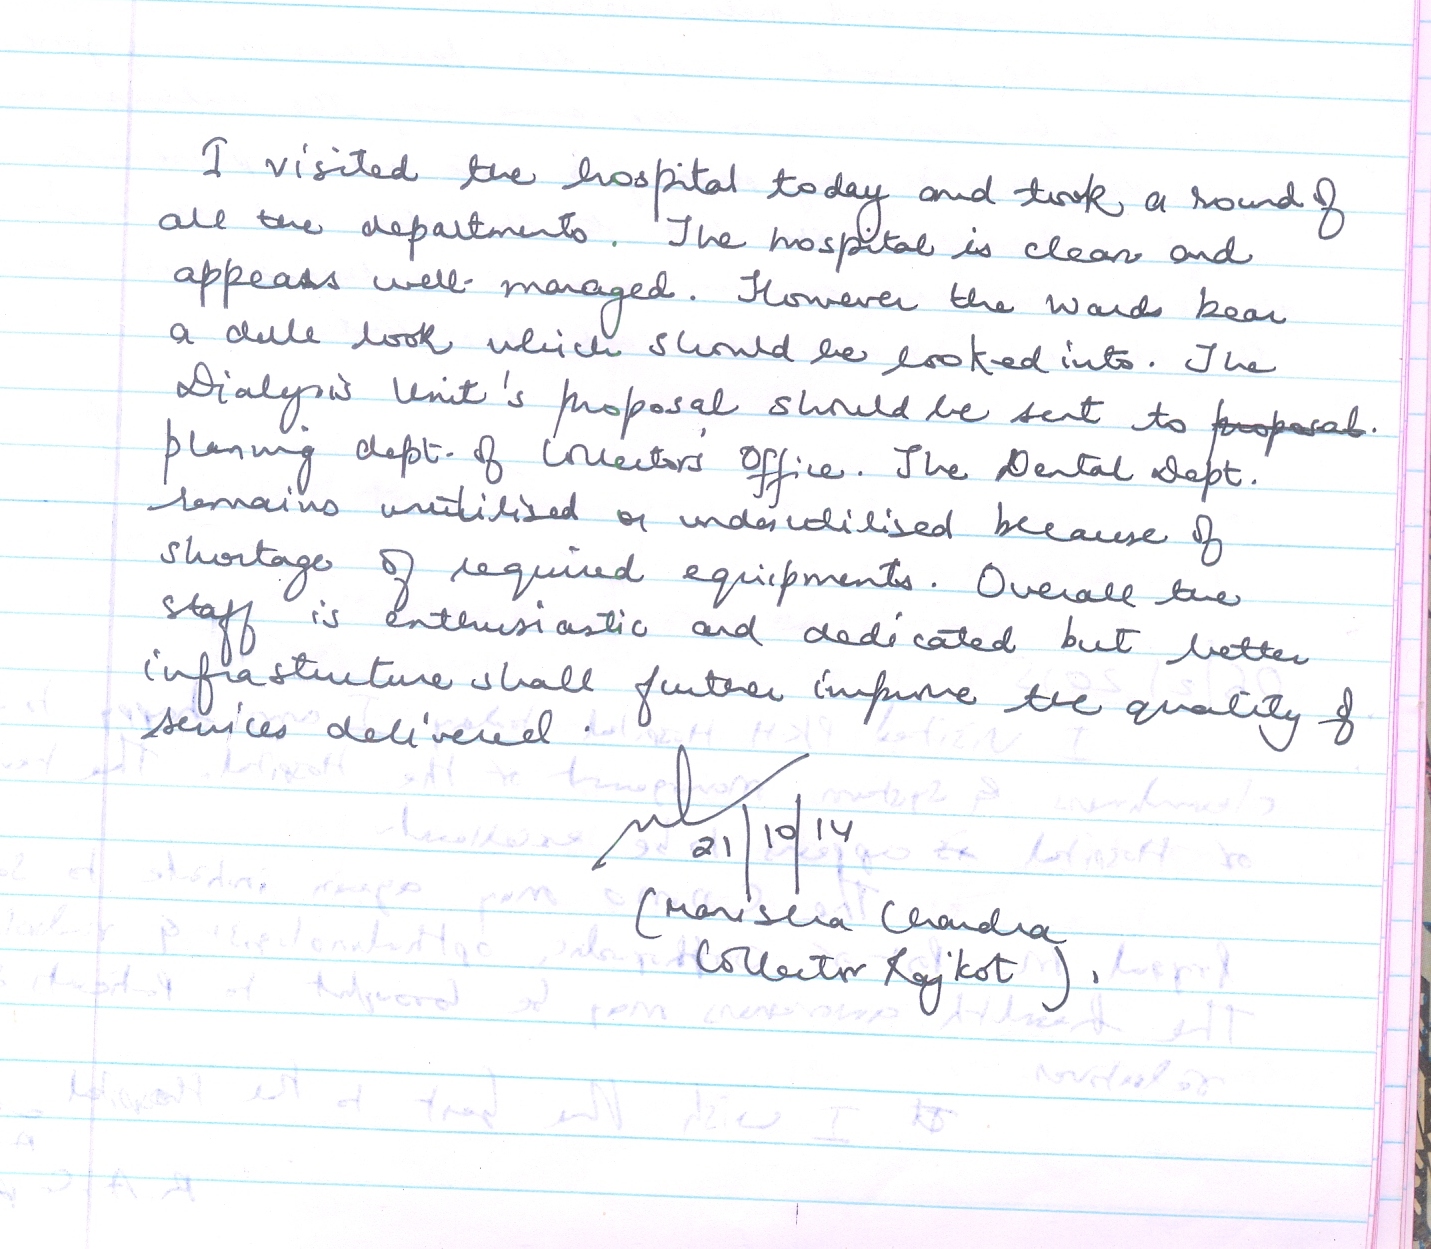 I visited the hospital today and took a round of
all the departments. The hospital is clean and
appears well-managed. However the wards bear
a dull look which should be looked into. The
Dialysis Unit's proposal should be sent to proposal.
planning dept. of Collector's Office. The Dental Dept.
remains unutilised or underutilised because of
shortage of required equipments. Overall the
staff is enthusiastic and dedicated but better
infrastructure shall further improve the quality of
services delivered.
21/10/14
(Manisha Chandra
Collector Rajkot).